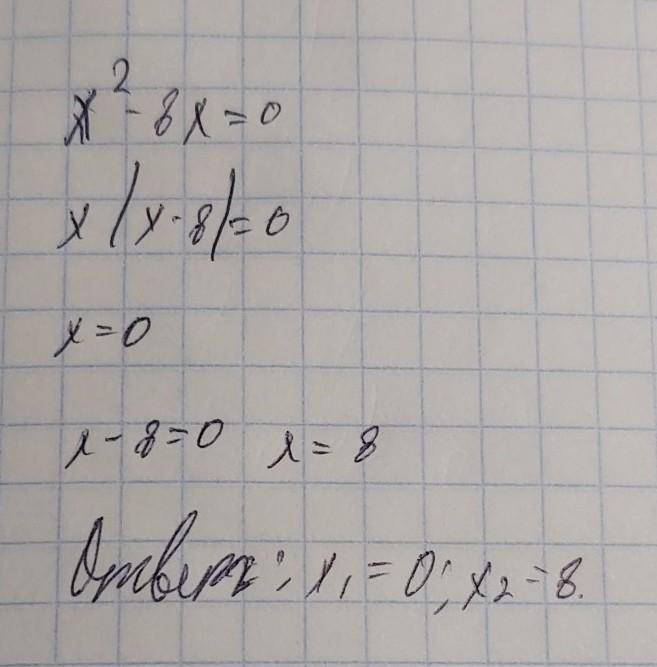 x² - 8x = 0
x (x - 8) = 0
x = 0
x - 8 = 0 x = 8
Ответ: x₁ = 0; x₂ = 8.